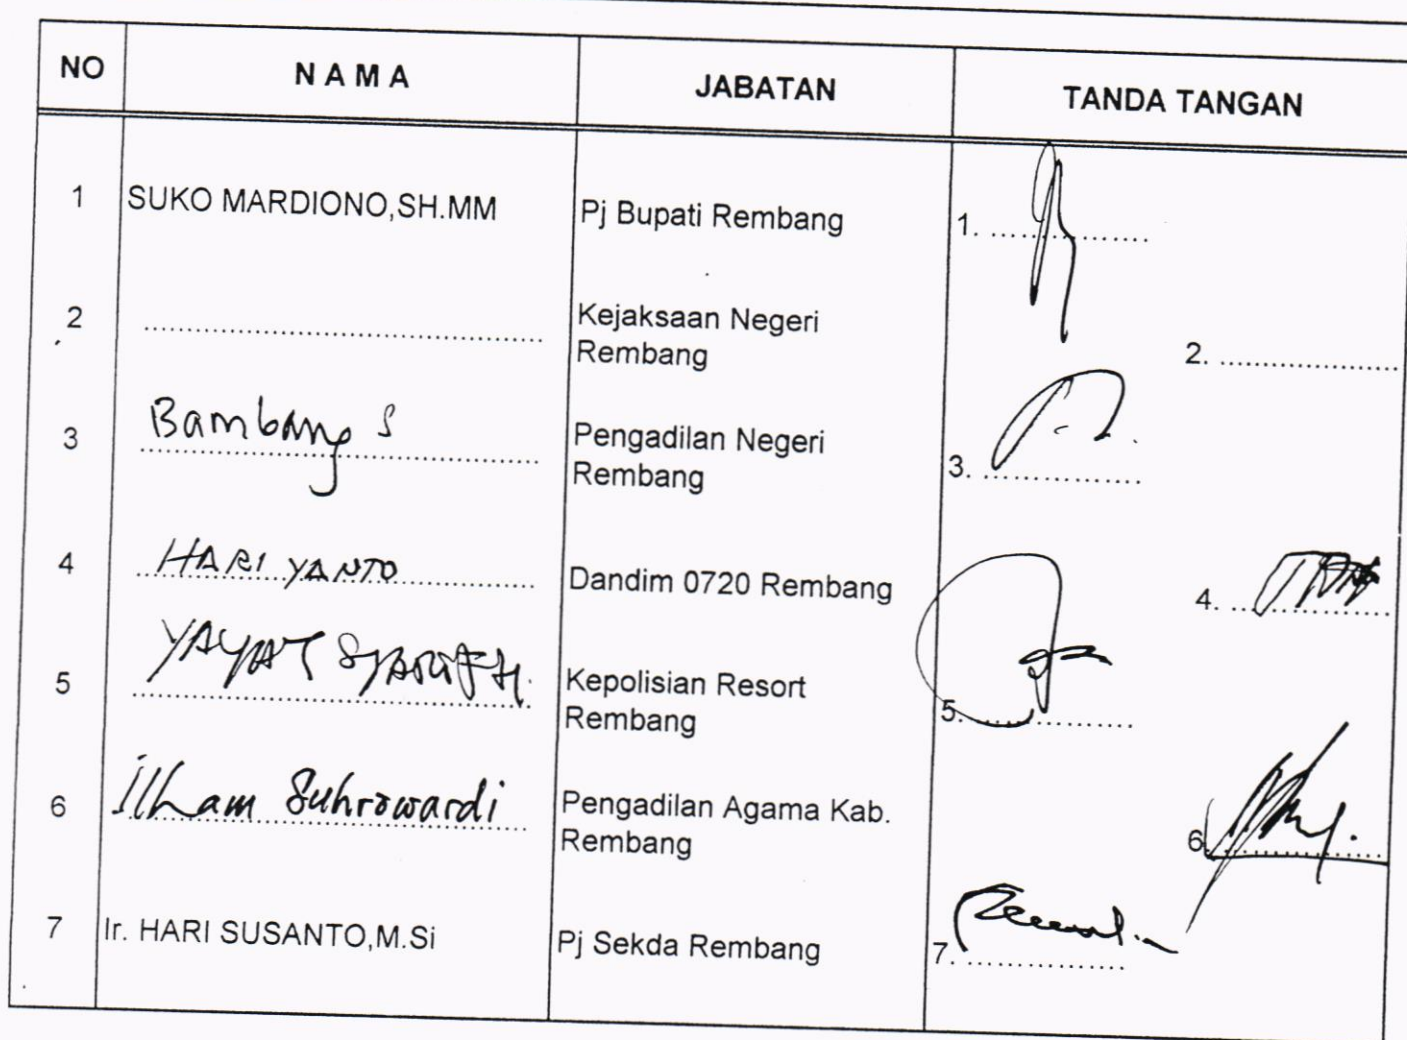 NO N A M A JABATAN TANDA TANGAN
1 SUKO MARDIONO,SH.MM Pj Bupati Rembang 1. ....................
2 .................................................. Kejaksaan Negeri
Rembang 2. ......................
3 Bambang S Pengadilan Negeri
Rembang 3. ....................
4 HARI YANTO Dandim 0720 Rembang 4. ....................
5 YAYAT SYARIF H. Kepolisian Resort
Rembang 5. ....................
6 Ilham Suhrowardi Pengadilan Agama Kab.
Rembang 6. ....................
7 Ir. HARI SUSANTO,M.Si Pj Sekda Rembang 7. ....................